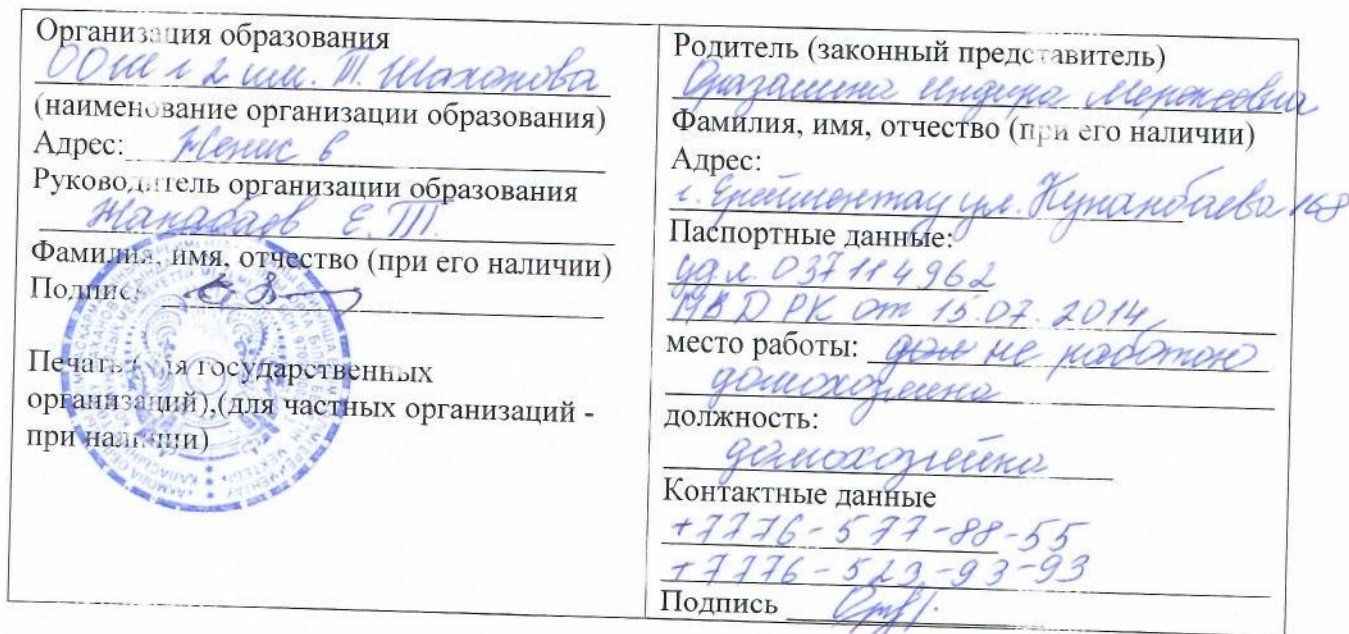 Организация образования
ООШ № 2 им. Т. Шаханова
(наименование организации образования)
Адрес: Женис 6
Руководитель организации образования
Жанабаев Е.Т.
Фамилия, имя, отчество (при его наличии)
Подпись
Печать (для государственных
организаций),(для частных организаций -
при наличии)
Родитель (законный представитель)
Оразалина Индира
Фамилия, имя, отчество (при его наличии)
Адрес:
г. Ерейментау ул. Кунанбаева 168
Паспортные данные:
уд.л. 037114962
МВД РК от 15.07.2014
место работы: не работаю
домохозяйка
должность:
домохозяйка
Контактные данные
+7776-577-88-55
+7776-523-93-93
Подпись